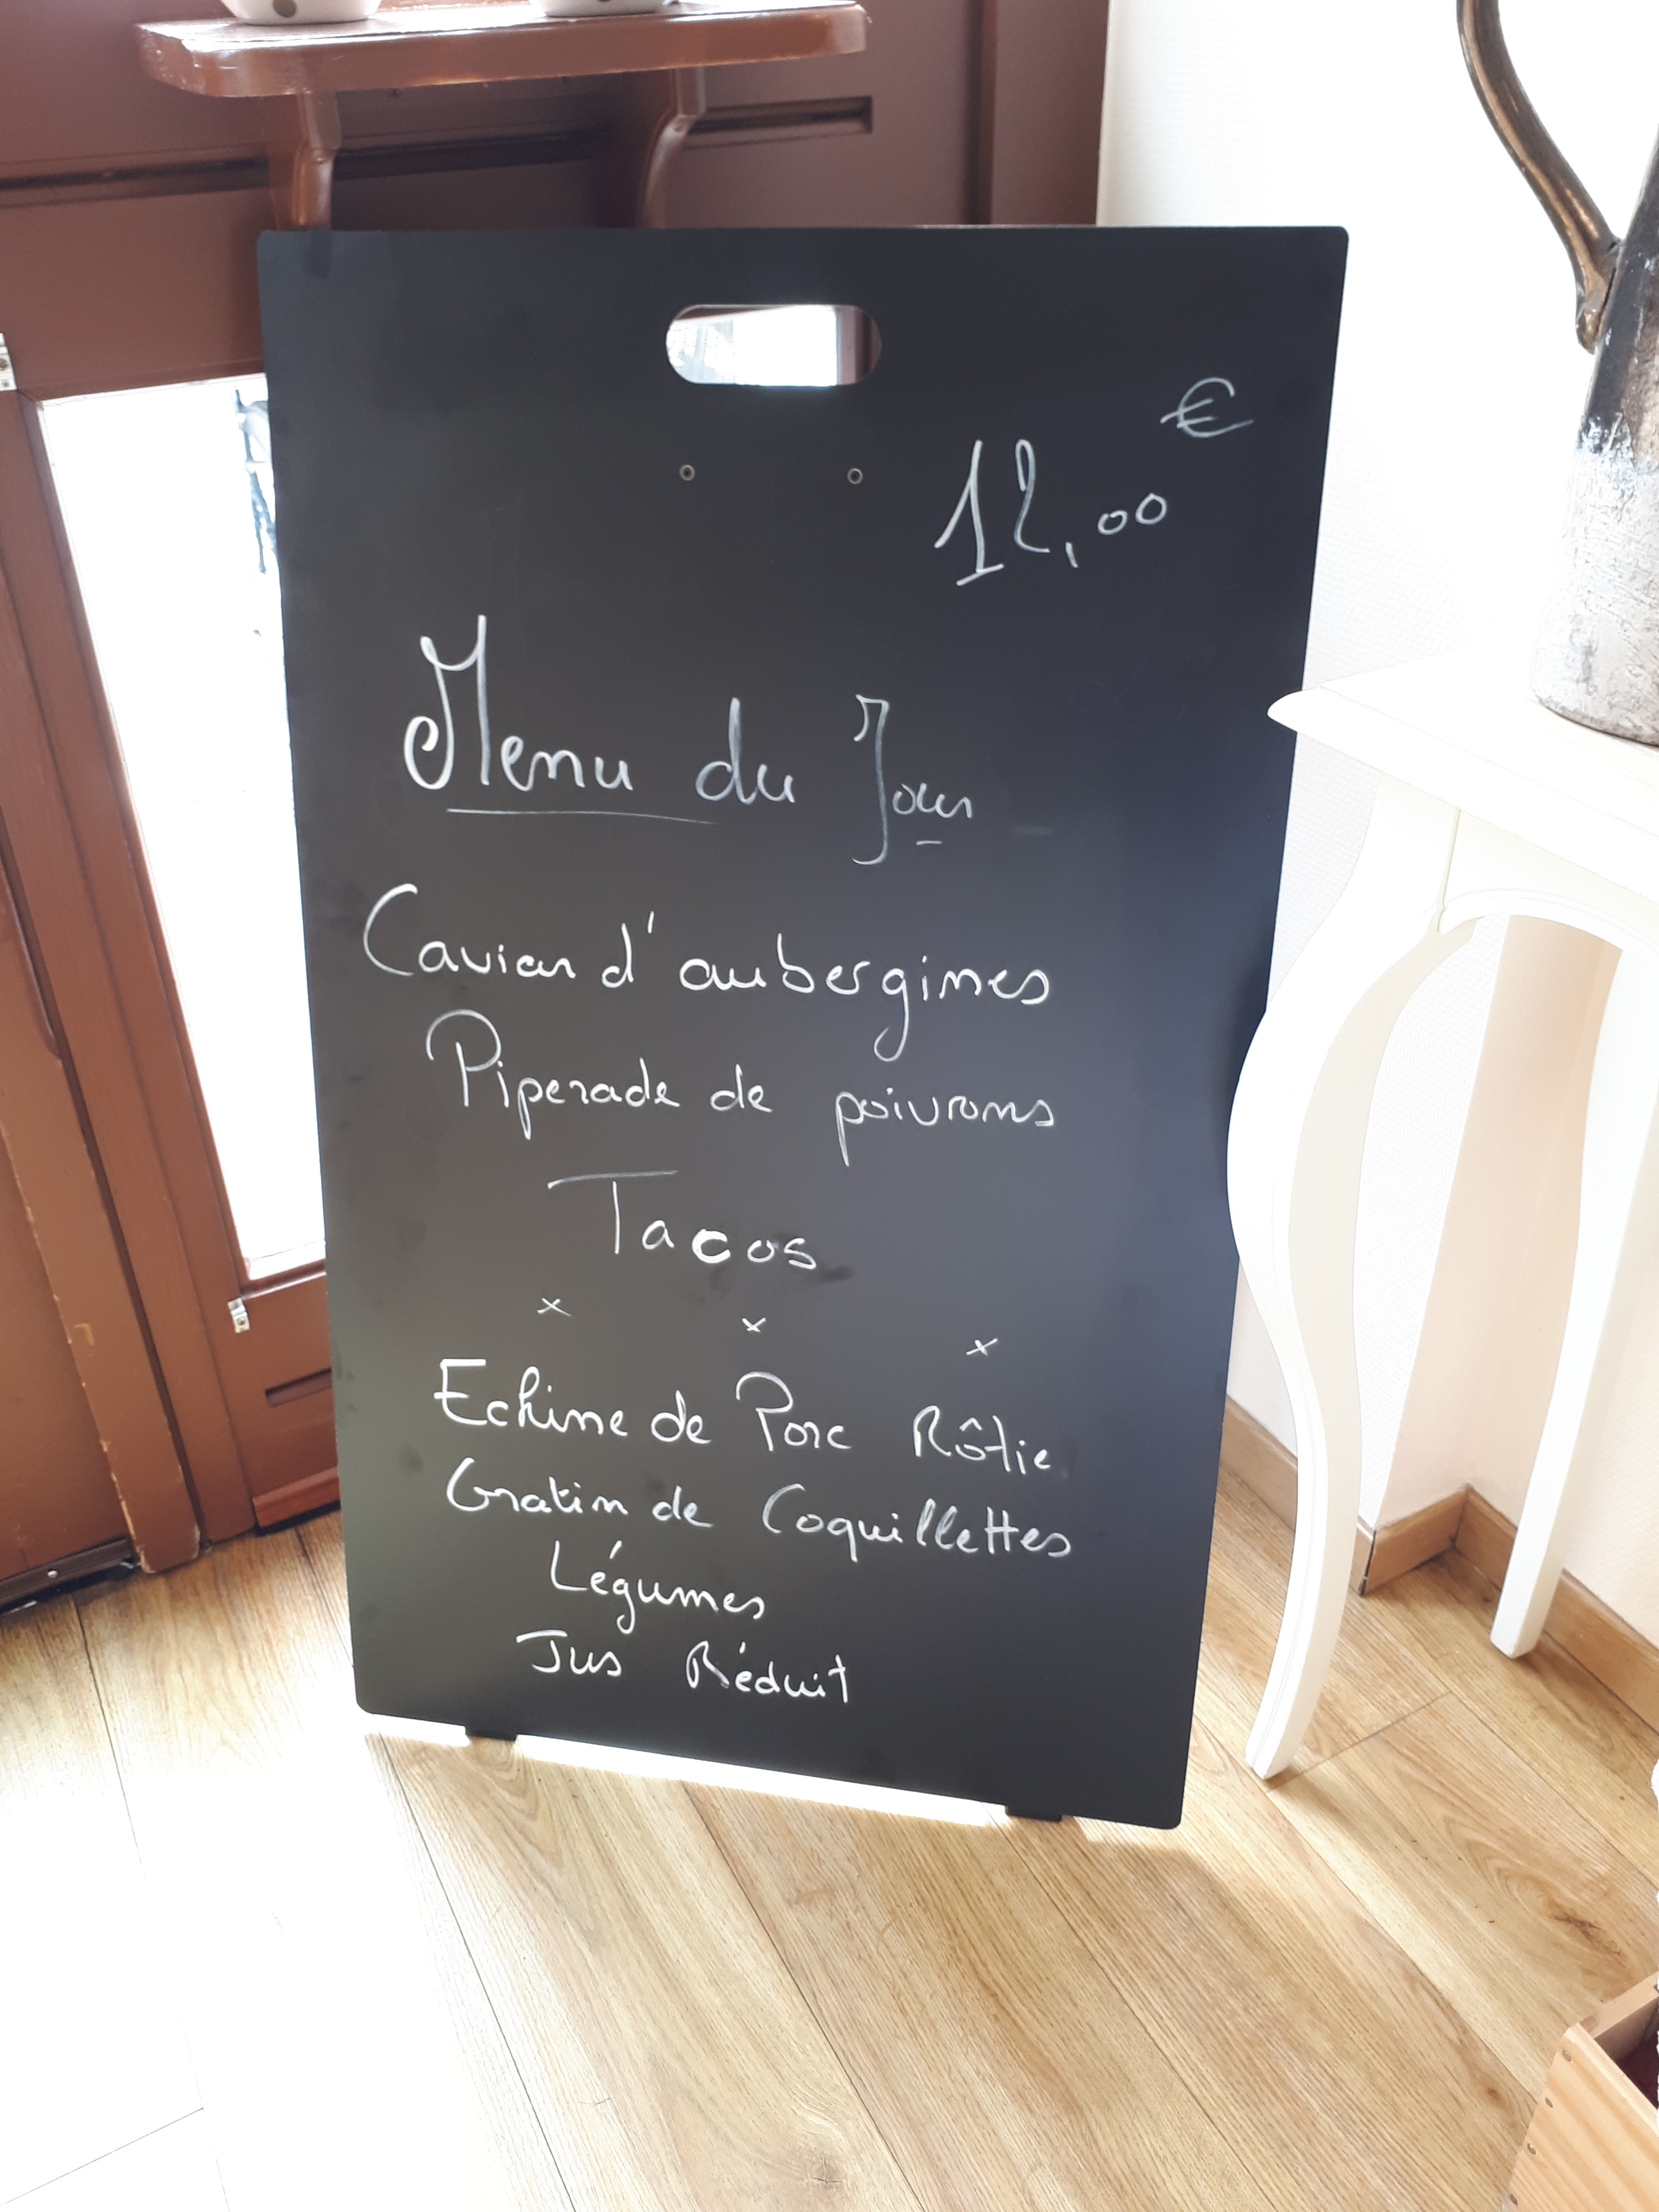 €
12,00
Menu du Jour
Caviar d'aubergines
Piperade de poivrons
Tacos
x x x
Echine de Porc Rôtie
Gratin de Coquillettes
Légumes
Jus Réduit